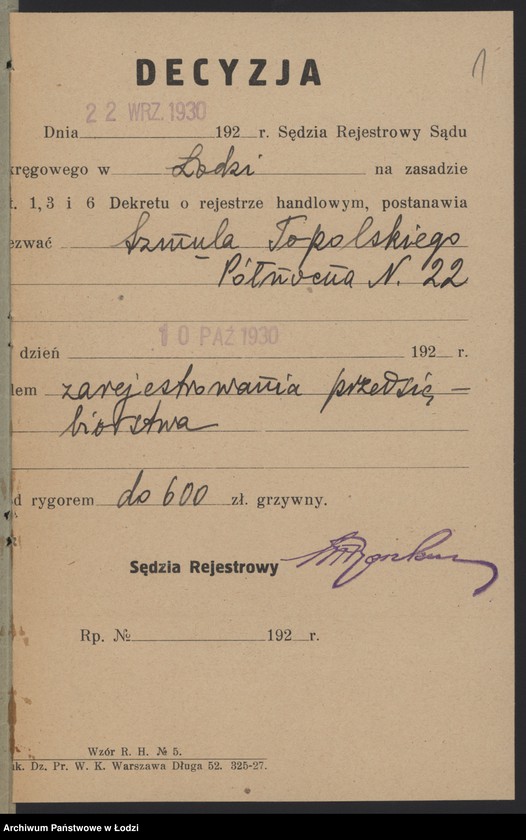 1
DECYZJA
22 WRZ. 1930
Dnia 192 r. Sędzia Rejestrowy Sądu
kręgowego w Łodzi na zasadzie
t. 1, 3 i 6 Dekretu o rejestrze handlowym, postanawia
ezwać Szmula Topolskiego
Północna N. 22
10 PAŹ 1930
dzień 192 r.
lem zarejestrowania przedsię-
biorstwa
d rygorem do 600 zł. grzywny.
Sędzia Rejestrowy
Rp. № 192 r.
Wzór R. H. № 5.
uk. Dz. Pr. W. K. Warszawa Długa 52. 325-27.
Archiwum Państwowe w Łodzi